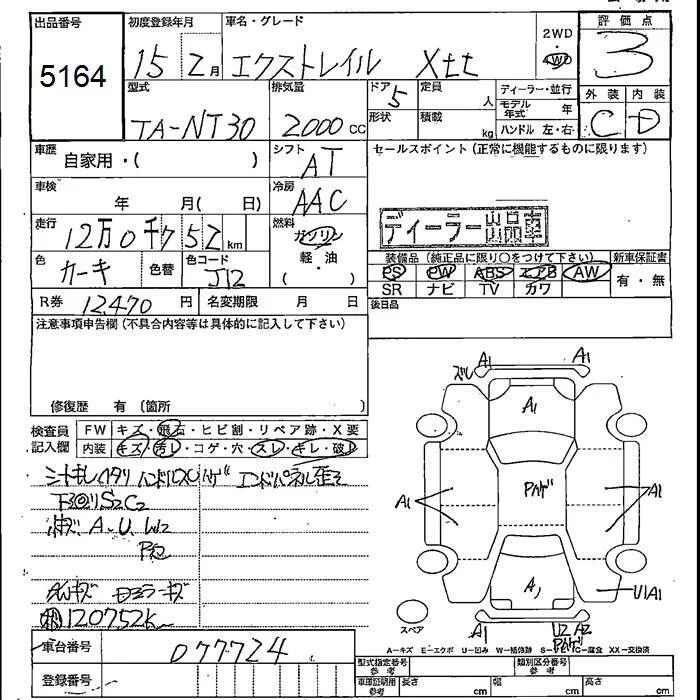 出品番号
5164
初度登録年月
15 2月
車名・グレード
エクストレイル Xtt
2WD
4WD
評価点
3
外装 内装
C D
型式
TA-NT30
排気量
2000cc
ドア
5
形状
定員
人
積載
kg
ディーラー・並行
モデル年式 年
ハンドル 左・右
車歴
自家用・( )
シフト
AT
セールスポイント(正常に機能するものに限ります)
ディーラー出品車
車検
年 月( 日)
冷房
AAC
走行
12万0千752km
燃料
ガソリン
軽・油
( )
色
カーキ
色替
色コード
J12
装備品(純正品に限り○をつけて下さい)
新車保証書
PS PW ABS エアB AW
SR ナビ TV カワ
有・無
R券 12,470円
名変期限 月 日
後日品
注意事項申告欄(不具合内容等は具体的に記入して下さい)
修復歴 有(箇所 )
検査員記入欄
FW キズ・飛石・ヒビ割・リペア跡・X要
内装 キズ・汚レ・コゲ・穴・スレ・キレ・破レ
エンドパネル歪ミ
下回りS2C2
A.U.W2
AWキズ ドアミラーキズ
120752K
車台番号
077724
登録番号
ズレ A1 A1
A1
A1 Pハゲ A1
A1
U1A1
スペア
A1 U2 A2
Pハゲ
A-キズ E-エクボ U-凹み W-補修跡 S-サビ C-腐食 XX-交換済
型式指定番号
参考
類別区分番号
参考
車庫証明用
参考
長さ cm 幅 cm 高さ cm